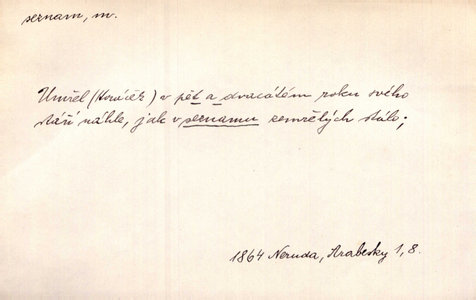 seznam, m.
Umřel (Horáček) v pět a dvacátém roku svého
stáří náhle, jak v seznamu zemřelých stálo;
1864 Neruda, Arabesky 1, 8.